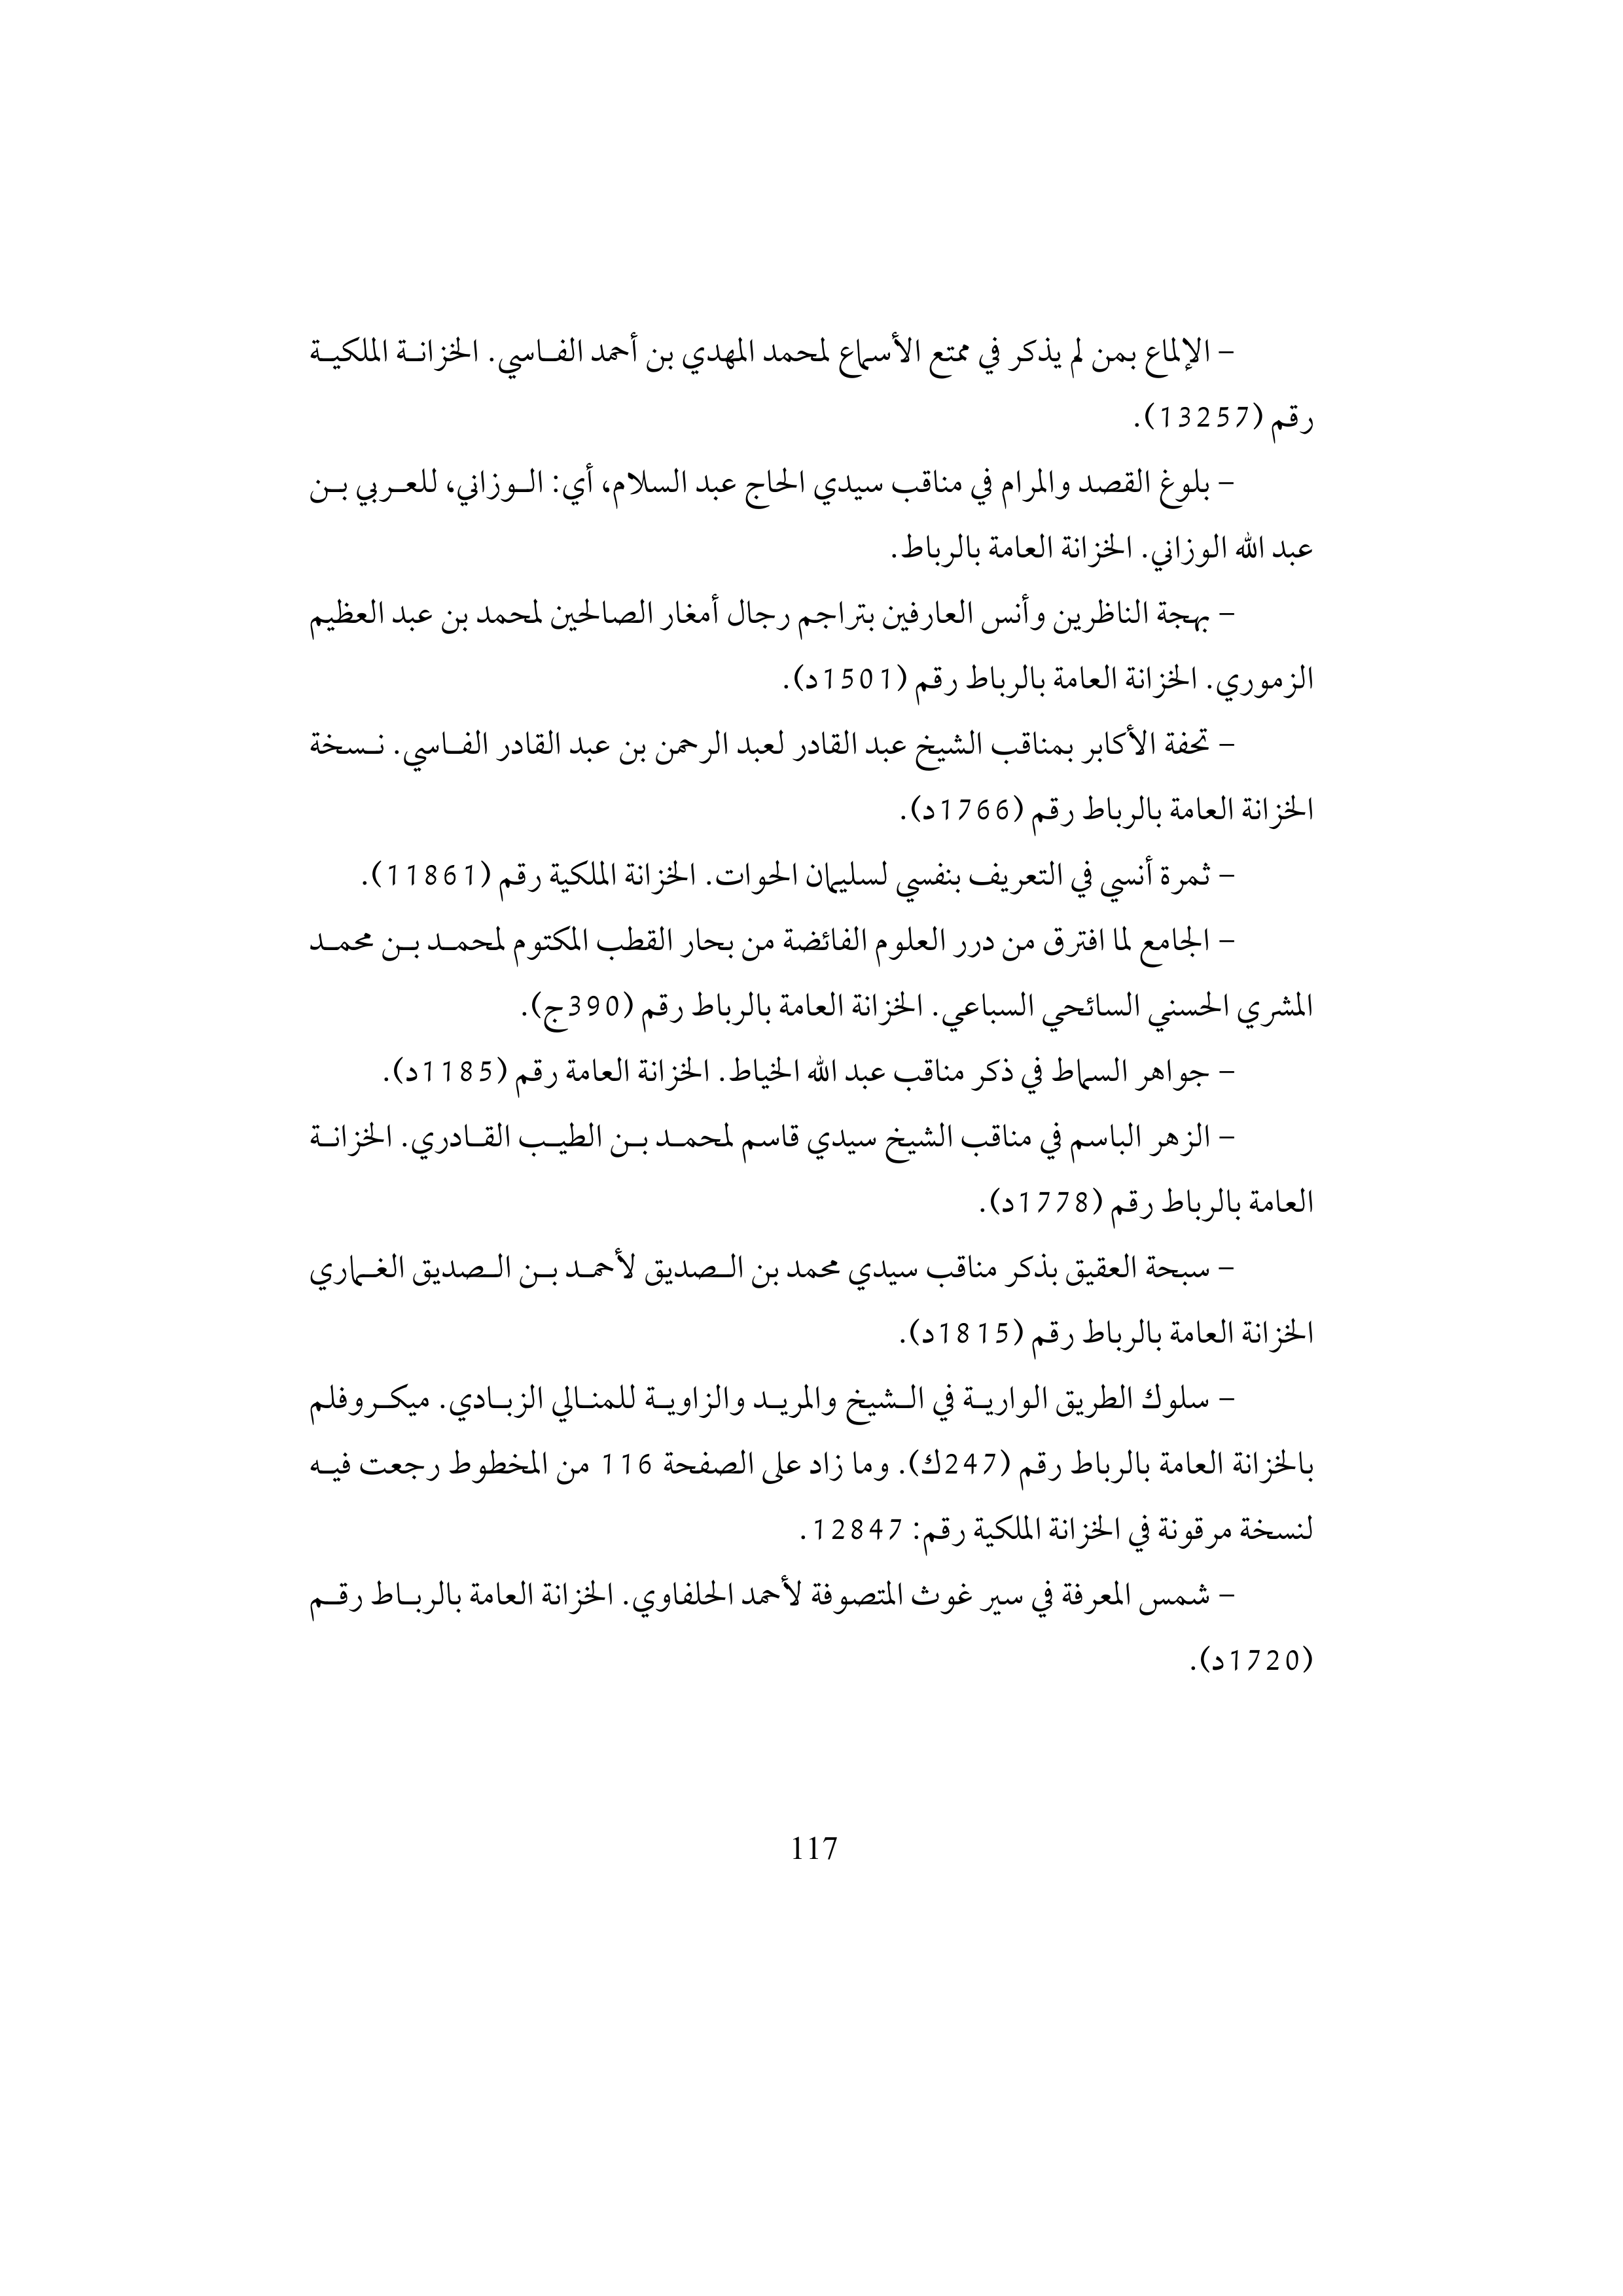 – الإلماع بمن لم يذكر في ممتع الأسماع لمحمد المهدي بن أحمد الفاسي. الخزانة الملكية
رقم (13257).
– بلوغ القصد والمرام في مناقب سيدي الحاج عبد السلام، أي: الوزاني، للعربي بن
عبد الله الوزاني. الخزانة العامة بالرباط.
– بهجة الناظرين وأنس العارفين بتراجم رجال أمغار الصالحين لمحمد بن عبد العظيم
الزموري. الخزانة العامة بالرباط رقم (1501د).
– تحفة الأكابر بمناقب الشيخ عبد القادر لعبد الرحمن بن عبد القادر الفاسي. نسخة
الخزانة العامة بالرباط رقم (1766د).
– ثمرة أنسي في التعريف بنفسي لسليمان الحوات. الخزانة الملكية رقم (11861).
– الجامع لما افترق من درر العلوم الفائضة من بحار القطب المكتوم لمحمد بن محمد
المشري الحسني السائحي السباعي. الخزانة العامة بالرباط رقم (390ج).
– جواهر السماط في ذكر مناقب عبد الله الخياط. الخزانة العامة رقم (1185د).
– الزهر الباسم في مناقب الشيخ سيدي قاسم لمحمد بن الطيب القادري. الخزانة
العامة بالرباط رقم (1778د).
– سبحة العقيق بذكر مناقب سيدي محمد بن الصديق لأحمد بن الصديق الغماري
الخزانة العامة بالرباط رقم (1815د).
– سلوك الطريق الوارية في الشيخ والمريد والزاوية للمنالي الزبادي. ميكروفلم
بالخزانة العامة بالرباط رقم (247ك). وما زاد على الصفحة 116 من المخطوط رجعت فيه
لنسخة مرقونة في الخزانة الملكية رقم: 12847.
– شمس المعرفة في سير غوث المتصوفة لأحمد الحلفاوي. الخزانة العامة بالرباط رقم
(1720د).
117